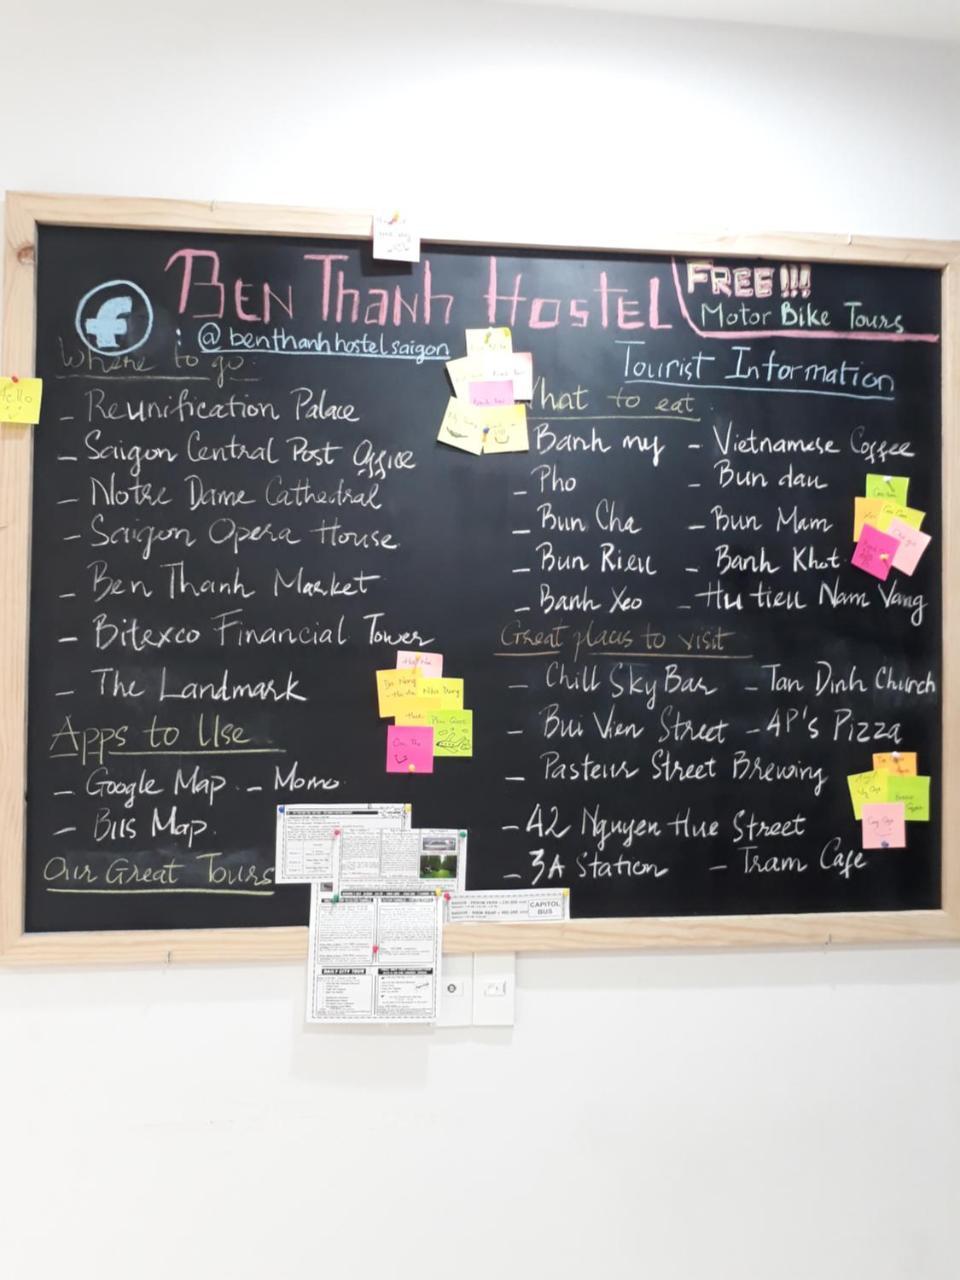 BEN THANH HOSTEL
FREE!!!
Motor Bike Tours
: @benthanhhostelsaigon
Tourist Information
Where to go:
- Reunification Palace
- Saigon Central Post Office
- Notre Dame Cathedral
- Saigon Opera House
- Ben Thanh Market
- Bitexco Financial Tower
- The Landmark
Apps to Use
- Google Map - Momo
- Bus Map.
Our Great Tours
What to eat
- Banh my - Vietnamese Coffee
- Pho - Bun dau
- Bun Cha - Bun Mam
- Bun Rieu - Banh Khot
- Banh Xeo - Hu tieu Nam Vang
Great places to visit
- Chill Sky Bar - Tan Dinh Church
- Bui Vien Street - 4P's Pizza
- Pasteur Street Brewing
- 42 Nguyen Hue Street
- 3A Station - Tram Cafe
Hello
Nha Trang
CAPITOL
BUS
DAILY CITY TOUR